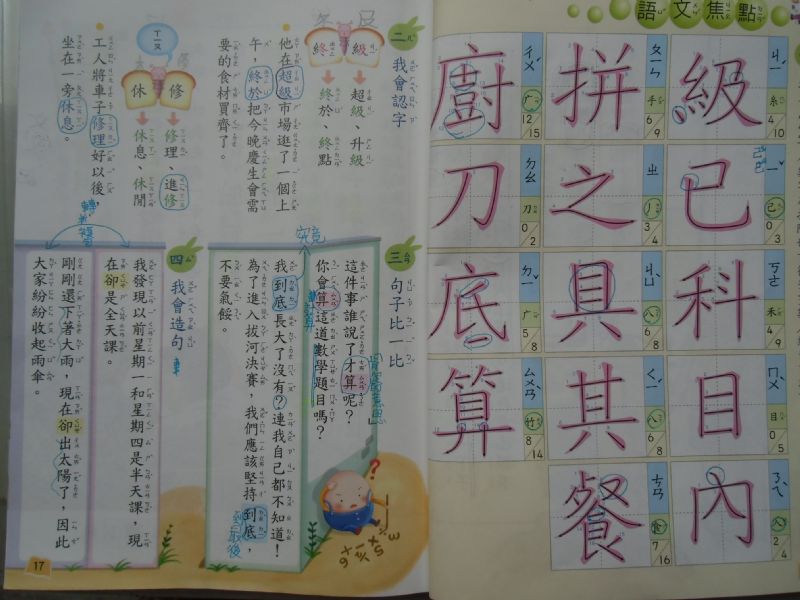 語文焦點
級 ㄐㄧˊ 糸 4 10
已 ㄧˇ 己 0 3
科 ㄎㄜ 禾 4 9
目 ㄇㄨˋ 目 0 5
內 ㄋㄟˋ 入 2 4
拼 ㄆㄧㄣ 手 6 9
之 ㄓ 丿 3 4
具 ㄐㄩˋ 八 6 8
其 ㄑㄧˊ 八 6 8
餐 ㄘㄢ 食 7 16
廚 ㄔㄨˊ 广 12 15
刀 ㄉㄠ 刀 0 2
底 ㄉㄧˇ 广 5 8
算 ㄙㄨㄢˋ 竹 8 14
二 我會認字
級 超級、升級
終 終於、終點
他在超級市場逛了一個上
午,終於把今晚慶生會需
要的食材買齊了。
ㄒㄧㄡ
修 修理、進修
休 休息、休閒
工人將車子修理好以後,
坐在一旁休息。
三 句子比一比
這件事誰說了才算呢?
你會算這道數學題目嗎?
計算
究竟
我到底長大了沒有?連我自己都不知道!
為了進入拔河決賽,我們應該堅持到底,
不要氣餒。
到最後
四 我會造句
我發現以前星期一和星期四是半天課,現
在卻是全天課。
剛剛還下著大雨,現在卻出太陽了,因此
大家紛紛收起雨傘。
17